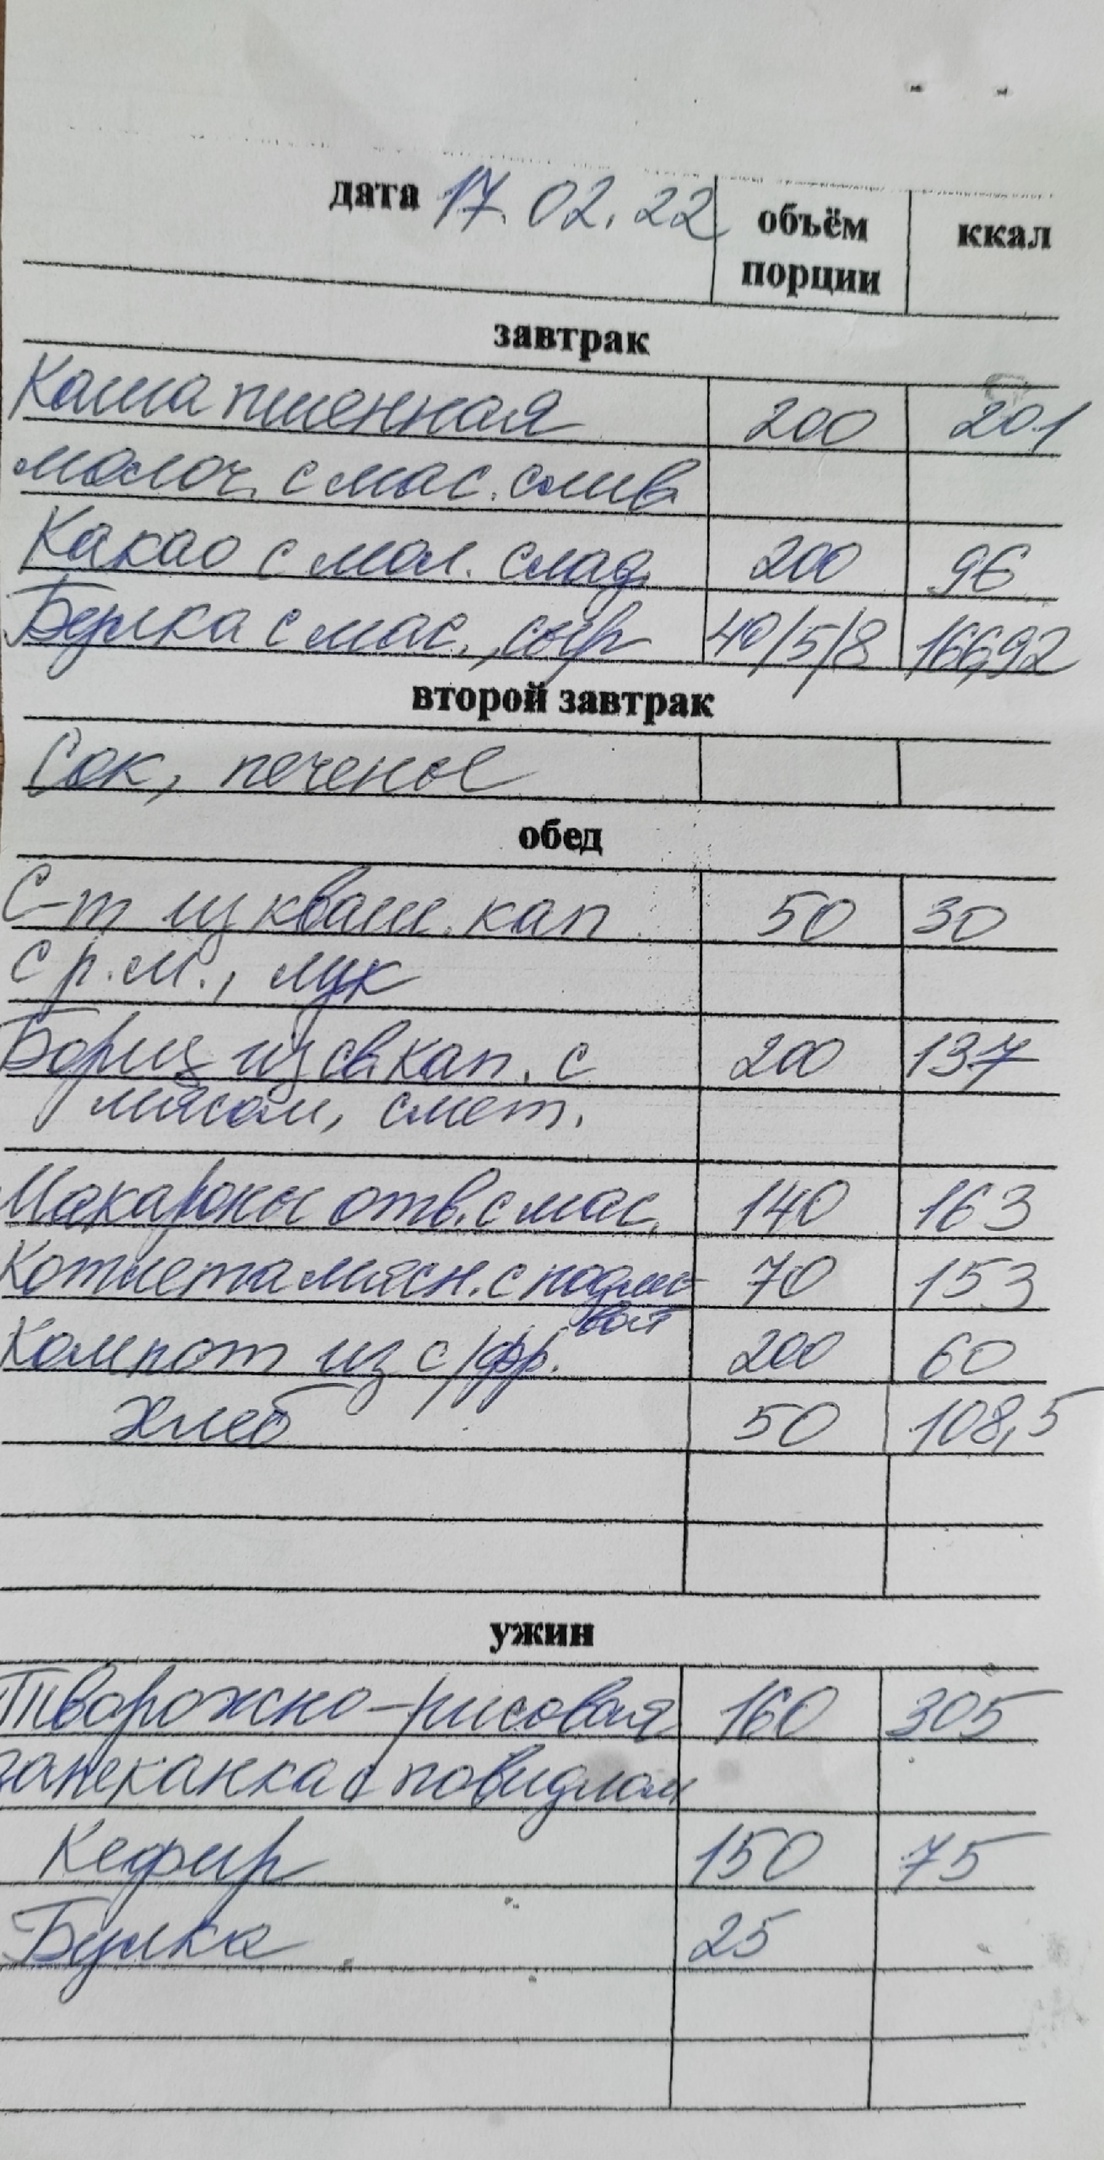 дата 17.02.22 объём порции ккал
завтрак
Каша пшенная 200 201
молоч. с мас. слив
Какао с мол. слад. 200 96
Булка с мас., сыр 40/5/8 166,92
второй завтрак
Сок, печенье
обед
С-т из кваш. кап 50 30
с р.м., лук
Борщ из св.кап. с 200 137
мясом, смет.
Макароны отв. с мас. 140 163
Котлета мясн. с подли- 70 153
вой
Компот из с/фр. 200 60
Хлеб 50 108,5
ужин
Творожно-рисовая 160 305
запеканка с повидлом
Кефир 150 75
Булка 25